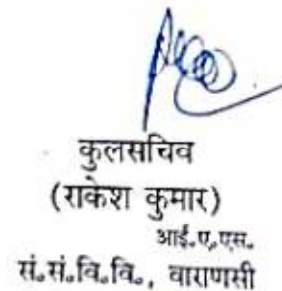 कुलसचिव
(राकेश कुमार)
आई.ए.एस.
सं.सं.वि.वि., वाराणसी